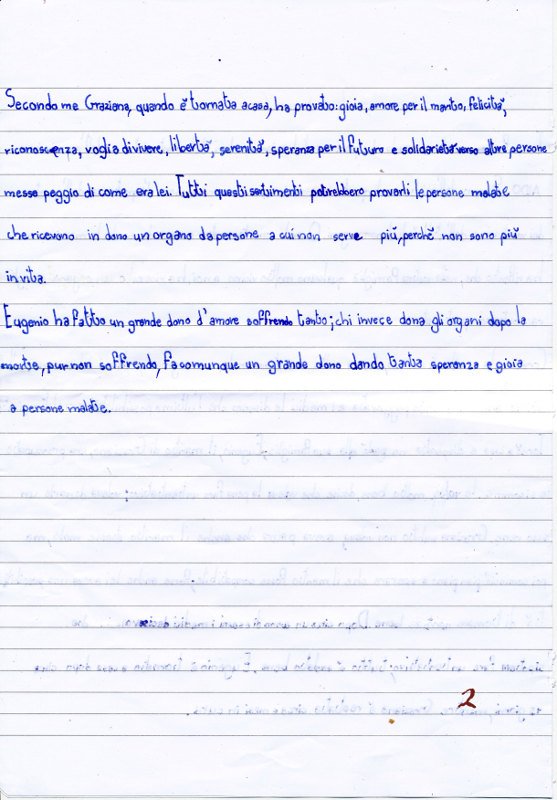 Secondo me Graziana, quando è tornata a casa, ha provato: gioia, amore per il marito, felicità,
riconoscenza, voglia di vivere, libertà, serenità, speranza per il futuro e solidarietà verso altre persone
messe peggio di come era lei. Tutti questi sentimenti potrebbero provarli le persone malate
che ricevono in dono un organo da persone a cui non serve più, perché non sono più
in vita.
Eugenio ha fatto un grande dono d'amore soffrendo tanto; chi invece dona gli organi dopo la
morte, pur non soffrendo, fa comunque un grande dono dando tanta speranza e gioia
a persone malate.
2